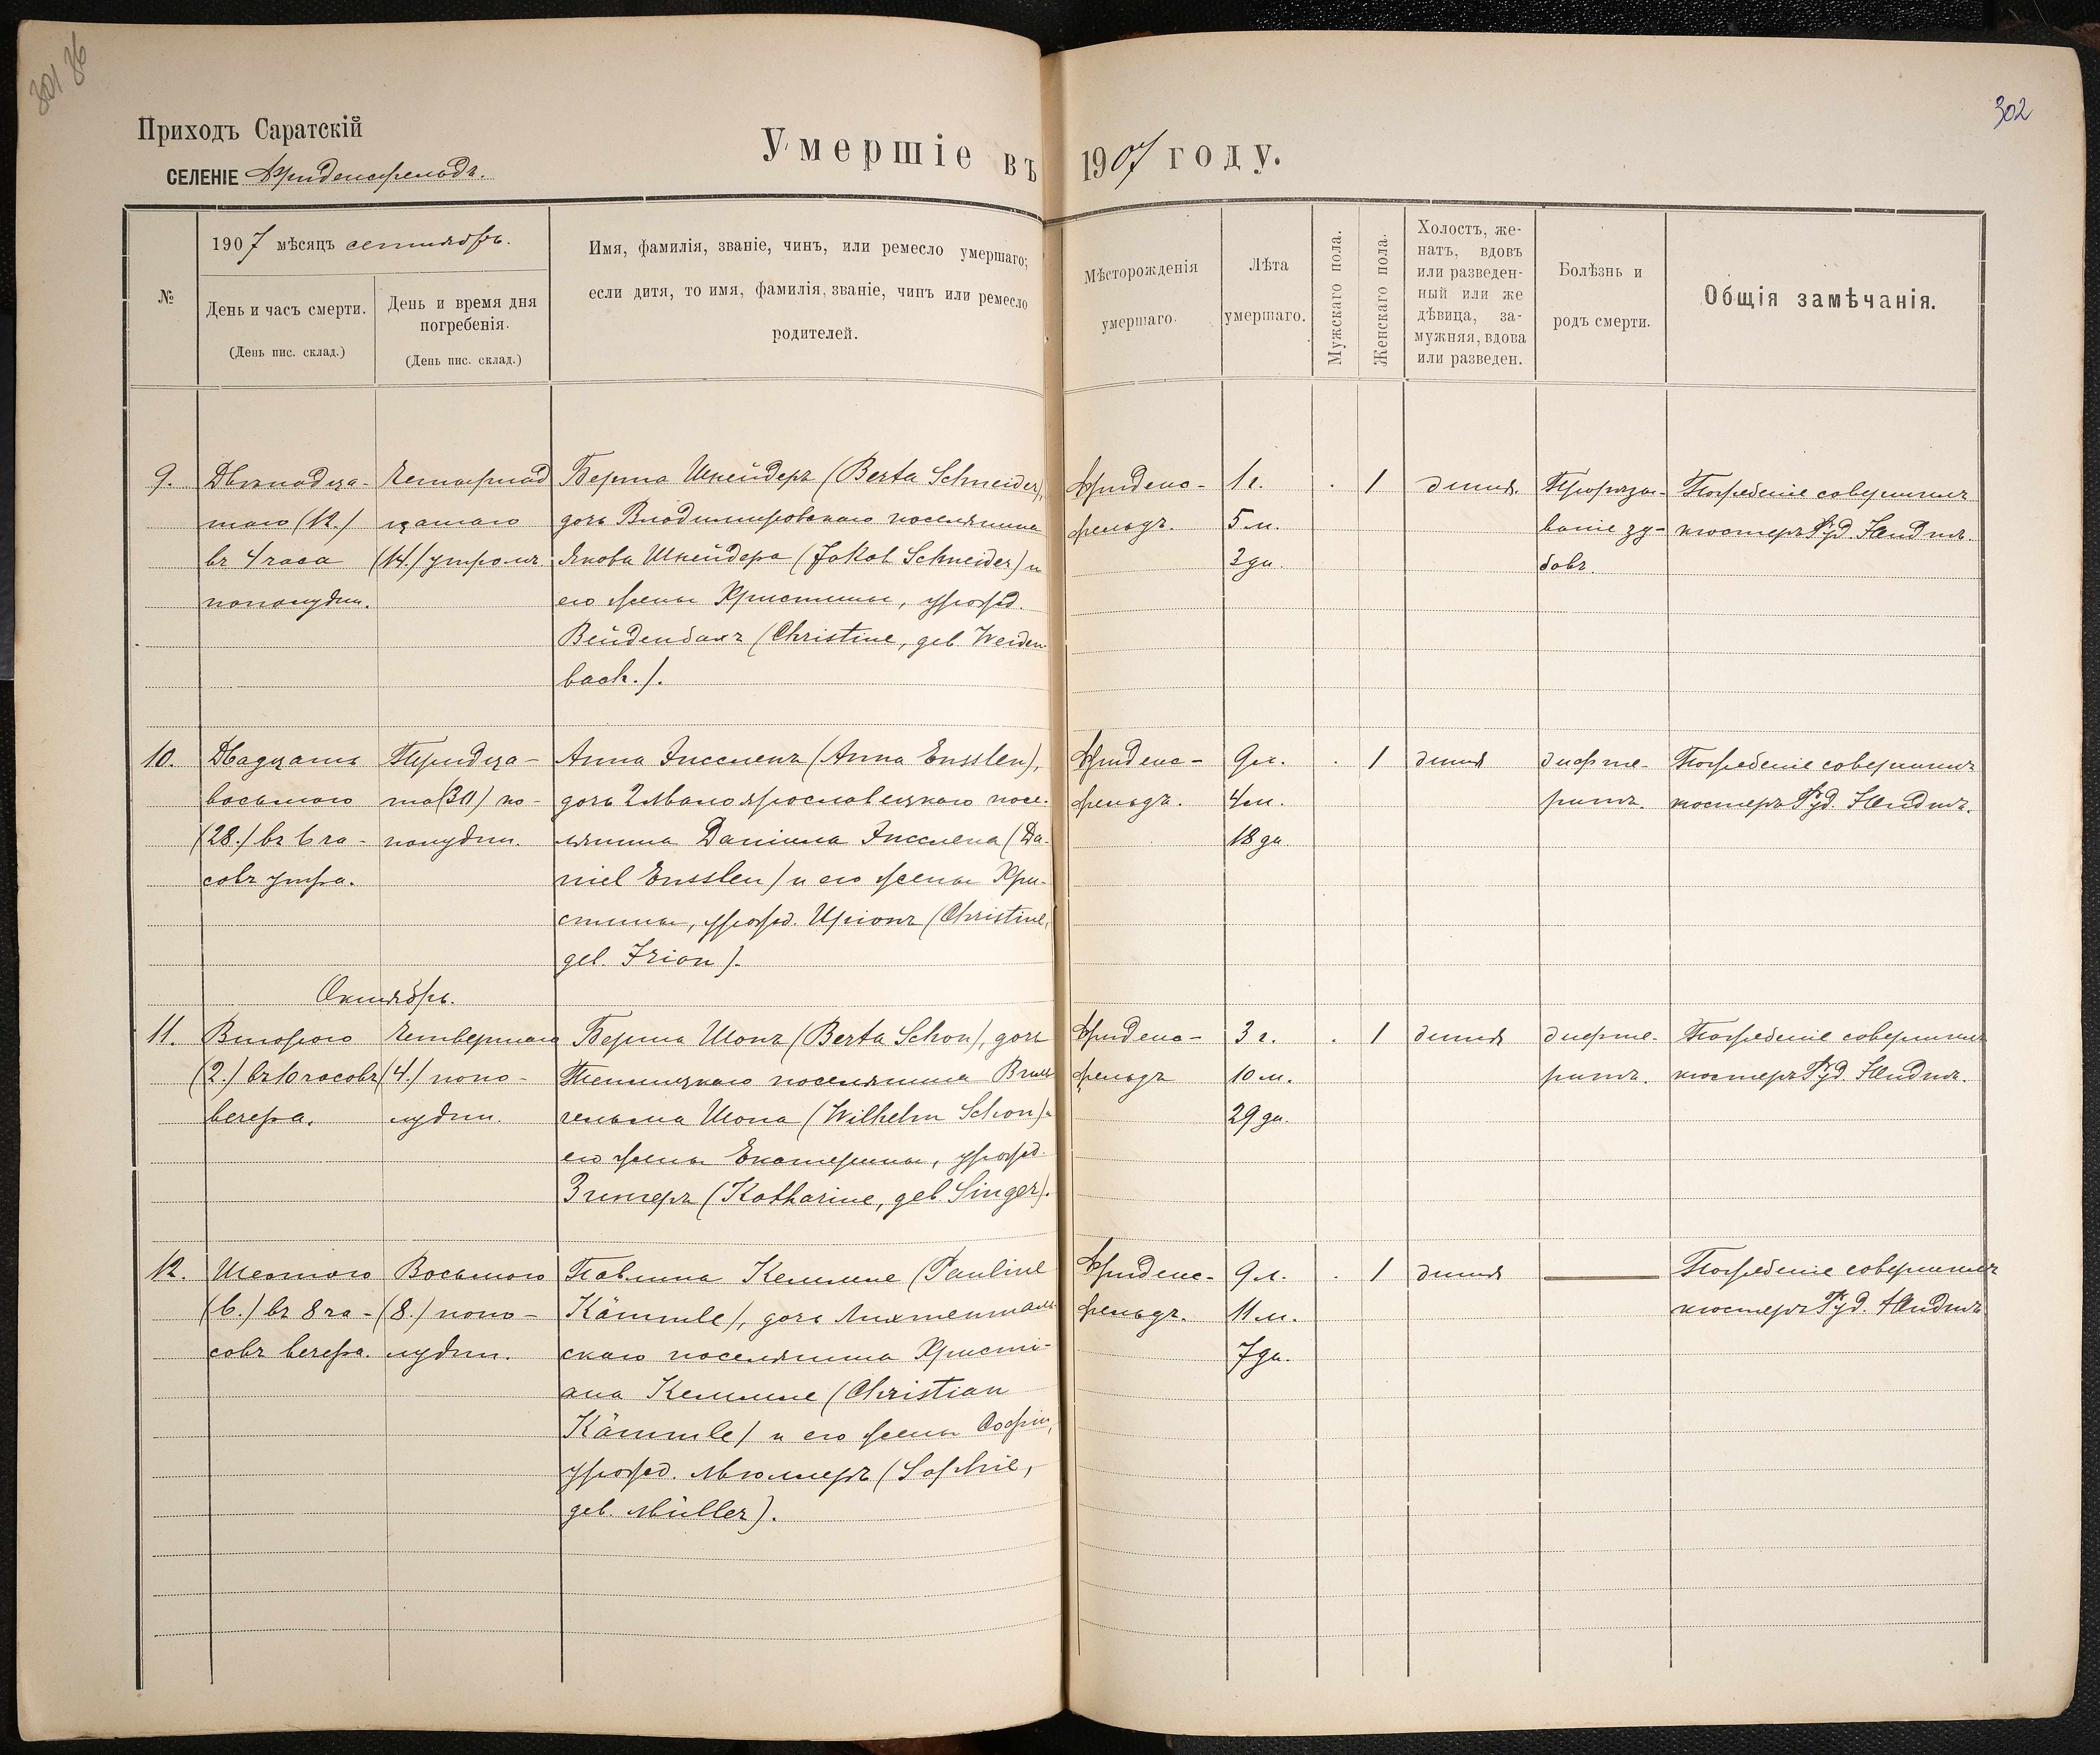 301 36
302
Приходъ Саратскій
СЕЛЕНІЕ Фриденсфельдъ.
Умершіе въ 1907 году.
№
1907 мѣсяцъ сентябрь.
День и часъ смерти.
(День пис. склад.)
День и время дня
погребенія.
(День пис. склад.)
Имя, фамилія, званіе, чинъ, или ремесло умершаго;
если дитя, то имя, фамилія, званіе, чинъ или ремесло
родителей.
Мѣсторожденія
умершаго.
Лѣта
умершаго.
Мужскаго пола.
Женскаго пола.
Холостъ, же-
натъ, вдовъ
или разведен-
ный или же
дѣвица, за-
мужняя, вдова
или разведен.
Болѣзнь и
родъ смерти.
Общія замѣчанія.
9.
Двѣнадца-
таго (12.)
въ 4 часа
пополудни.
Четырнад
цатаго
(14.) утромъ
Берта Шнейдеръ (Berta Schneider),
дочь Владимировскаго поселянина
Якова Шнейдера (Jakob Schneider) и
его жены Христины, урожд.
Вейденбахъ (Christine, geb. Weiden
bach.).
Фриденс-
фельдъ.
1 г.
5 м.
2 дн.
. 1
дитя.
Прорѣзы-
ваніе зу-
бовъ.
Погребеніе совершилъ
кюстеръ Руд.
10.
Двадцать
восьмого
(28.) въ 6 ча-
совъ утра.
Тридца-
та (30) по-
полудни.
Анна Энсленъ (Anna Ensslen),
дочь 2 Малоярославецкаго посе-
лянина Даніила Энслена (Da-
niel Ensslen) и его жены Хри-
стины, урожд. Иріонъ (Christine,
geb. Irion).
Фриденс-
фельдъ.
9 л.
4 м.
18 дн.
. 1
дитя
дифте-
ритъ.
Погребеніе совершилъ
кюстеръ Руд.
Октябрь.
11.
Второго
(2.) въ 10 часовъ
вечера.
Четвертаго
(4.) попо-
лудни.
Берта Шонъ (Berta Schon), дочь
Теплицкаго поселянина Виль
гельма Шона (Wilhelm Schon) и
его жены Екатерины, урожд.
Зингеръ (Katharine, geb. Singer).
Фриденс-
фельдъ
3 г.
10 м.
29 дн.
. 1
дитя
дифте-
ритъ.
Погребеніе совершилъ
кюстеръ Руд.
12.
Шестого
(6.) въ 8 ча-
совъ вечера.
Восьмого
(8.) попо-
лудни.
Павлина Кеммле (Pauline
Kämmle), дочь Лихтенталь
скаго поселянина Христі-
ана Кеммле (Christian
Kämmle) и его жены Софіи,
урожд. Мюллеръ (Sophie,
geb. Müller).
Фриденс-
фельдъ.
9 л.
11 м.
7 дн.
. 1
дитя
Погребеніе совершилъ
кюстеръ Руд.